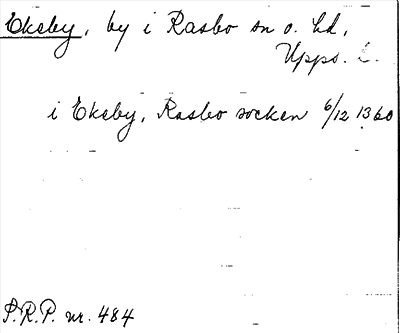 Ekeby, by i Rasbo sn o. hd,
Upps. L.
i Ekeby, Rasbo socken 6/12 1360
P.R.P. nr. 484